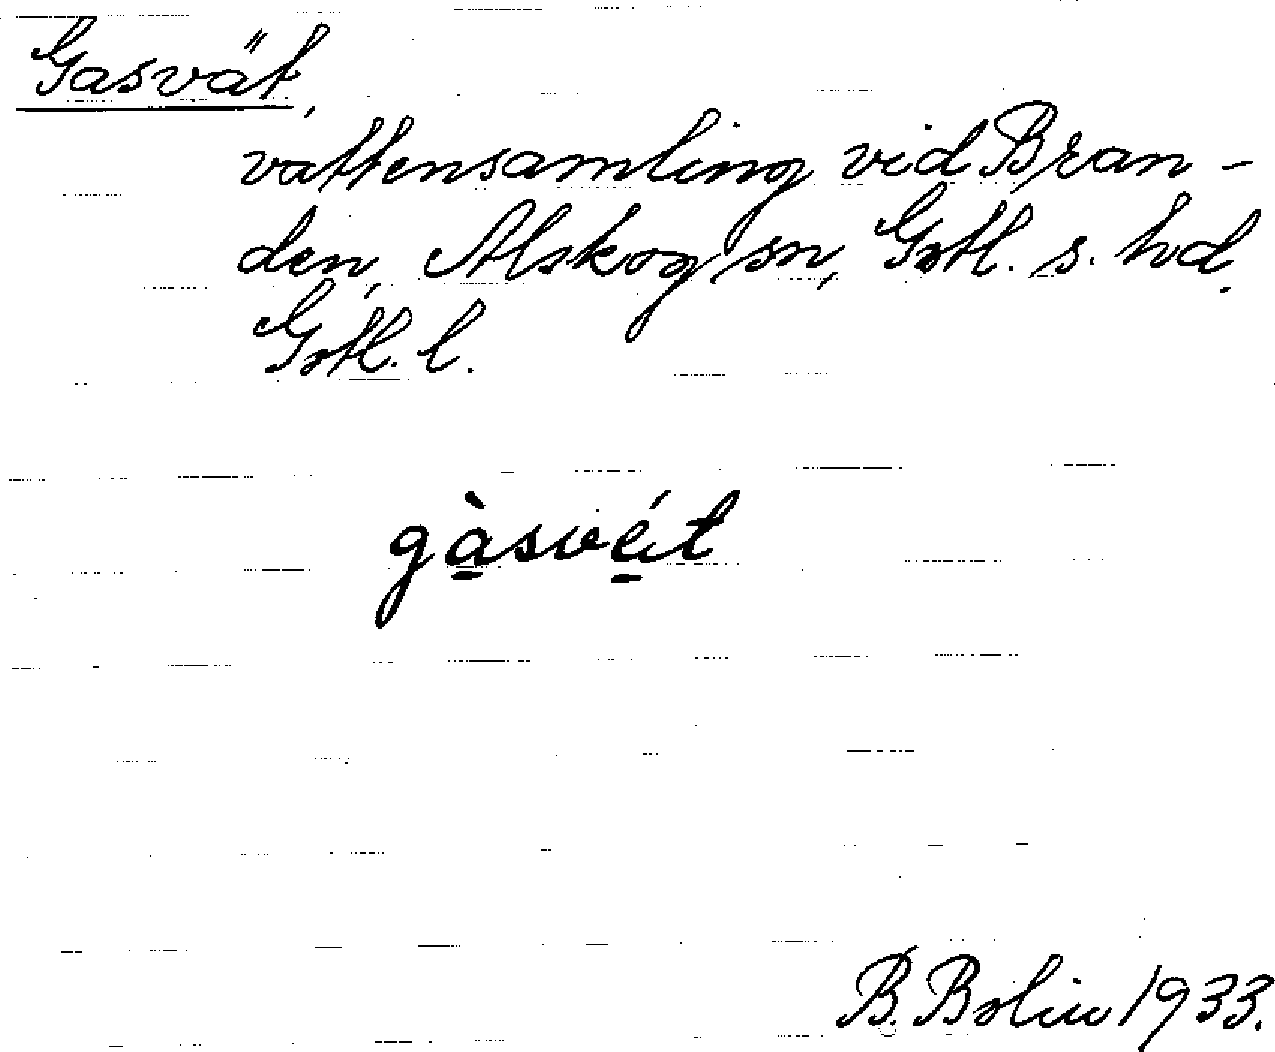 Gasvät,
vattensamling vid Bran-
den, Alskog sn, Gotl. s. hd.
Gotl. l.
gàsvét
B. Bolin 1933.